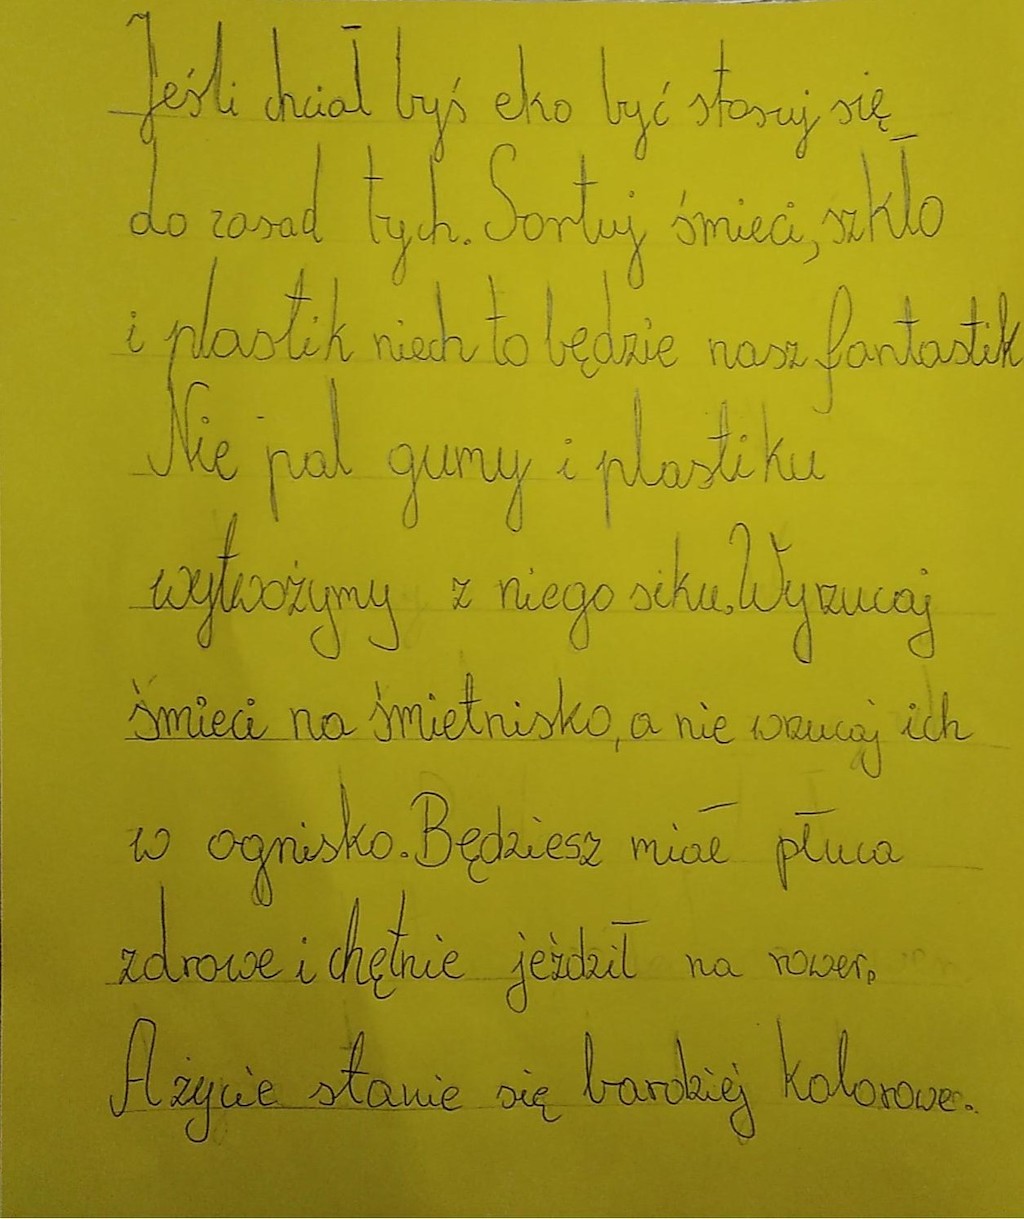 Jeśli chciał byś eko być stosuj się
do zasad tych. Sortuj śmieci, szkło
i plastik niech to będzie nasz fantastik
Nie pal gumy i plastiku
wytwożymy z niego siku. Wyrzucaj
śmieci na śmietnisko, a nie wrzucaj ich
w ognisko. Będziesz miał płuca
zdrowe i chętnie jeździł na rower.
A życie stanie się bardziej kolorowe.